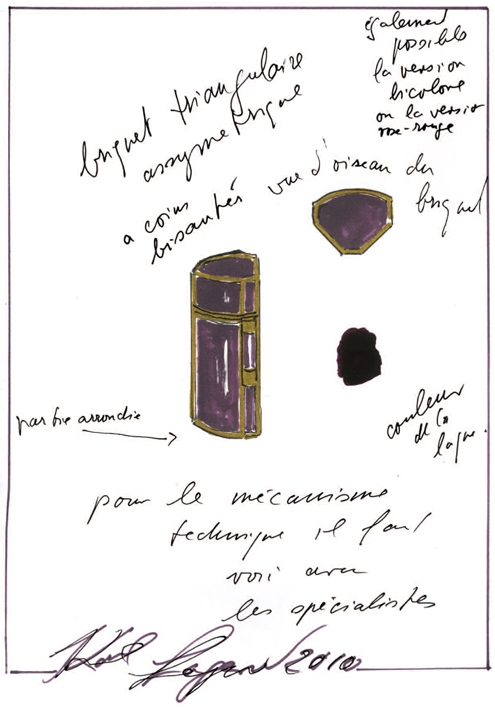 également
possible
la version
bicolore
ou la version
rose-rouge
briquet triangulaire
assymetrique
a coins
bisautés
vue d'oiseau du
briquet
partie arrondie
couleur
de la
laque.
pour le mécanisme
technique il faut
voir avec
les spécialistes
Karl Lagerfeld 2010